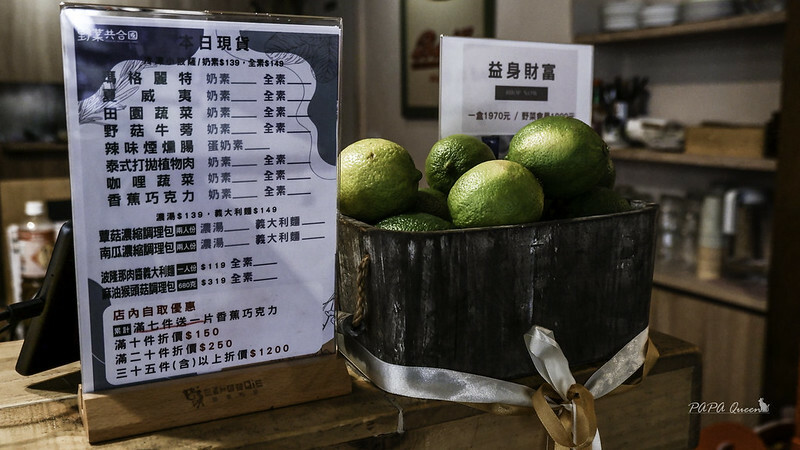 野菜共合國
本日現貨
披薩/奶素$139，全素$149
瑪格麗特 奶素 全素
夏威夷 奶素 全素
田園蔬菜 奶素 全素
野菇牛蒡 奶素 全素
辣味煙燻腸 蛋奶素
泰式打拋植物肉 奶素 全素
咖哩蔬菜 奶素 全素
香蕉巧克力 奶素 全素
濃湯$139，義大利麵$149
蕈菇濃縮調理包 兩人份 濃湯 義大利麵
南瓜濃縮調理包 兩人份 濃湯 義大利麵
波隆那肉醬義大利麵 一人份 $119 全素
麻油猴頭菇調理包 680克 $319 全素
店內自取優惠
累計 滿七件送一片香蕉巧克力
滿十件折價$150
滿二十件折價$250
三十五件(含)以上折價$1200
益身財富
一盒1970元 / 野菜會員
PAPA Queen